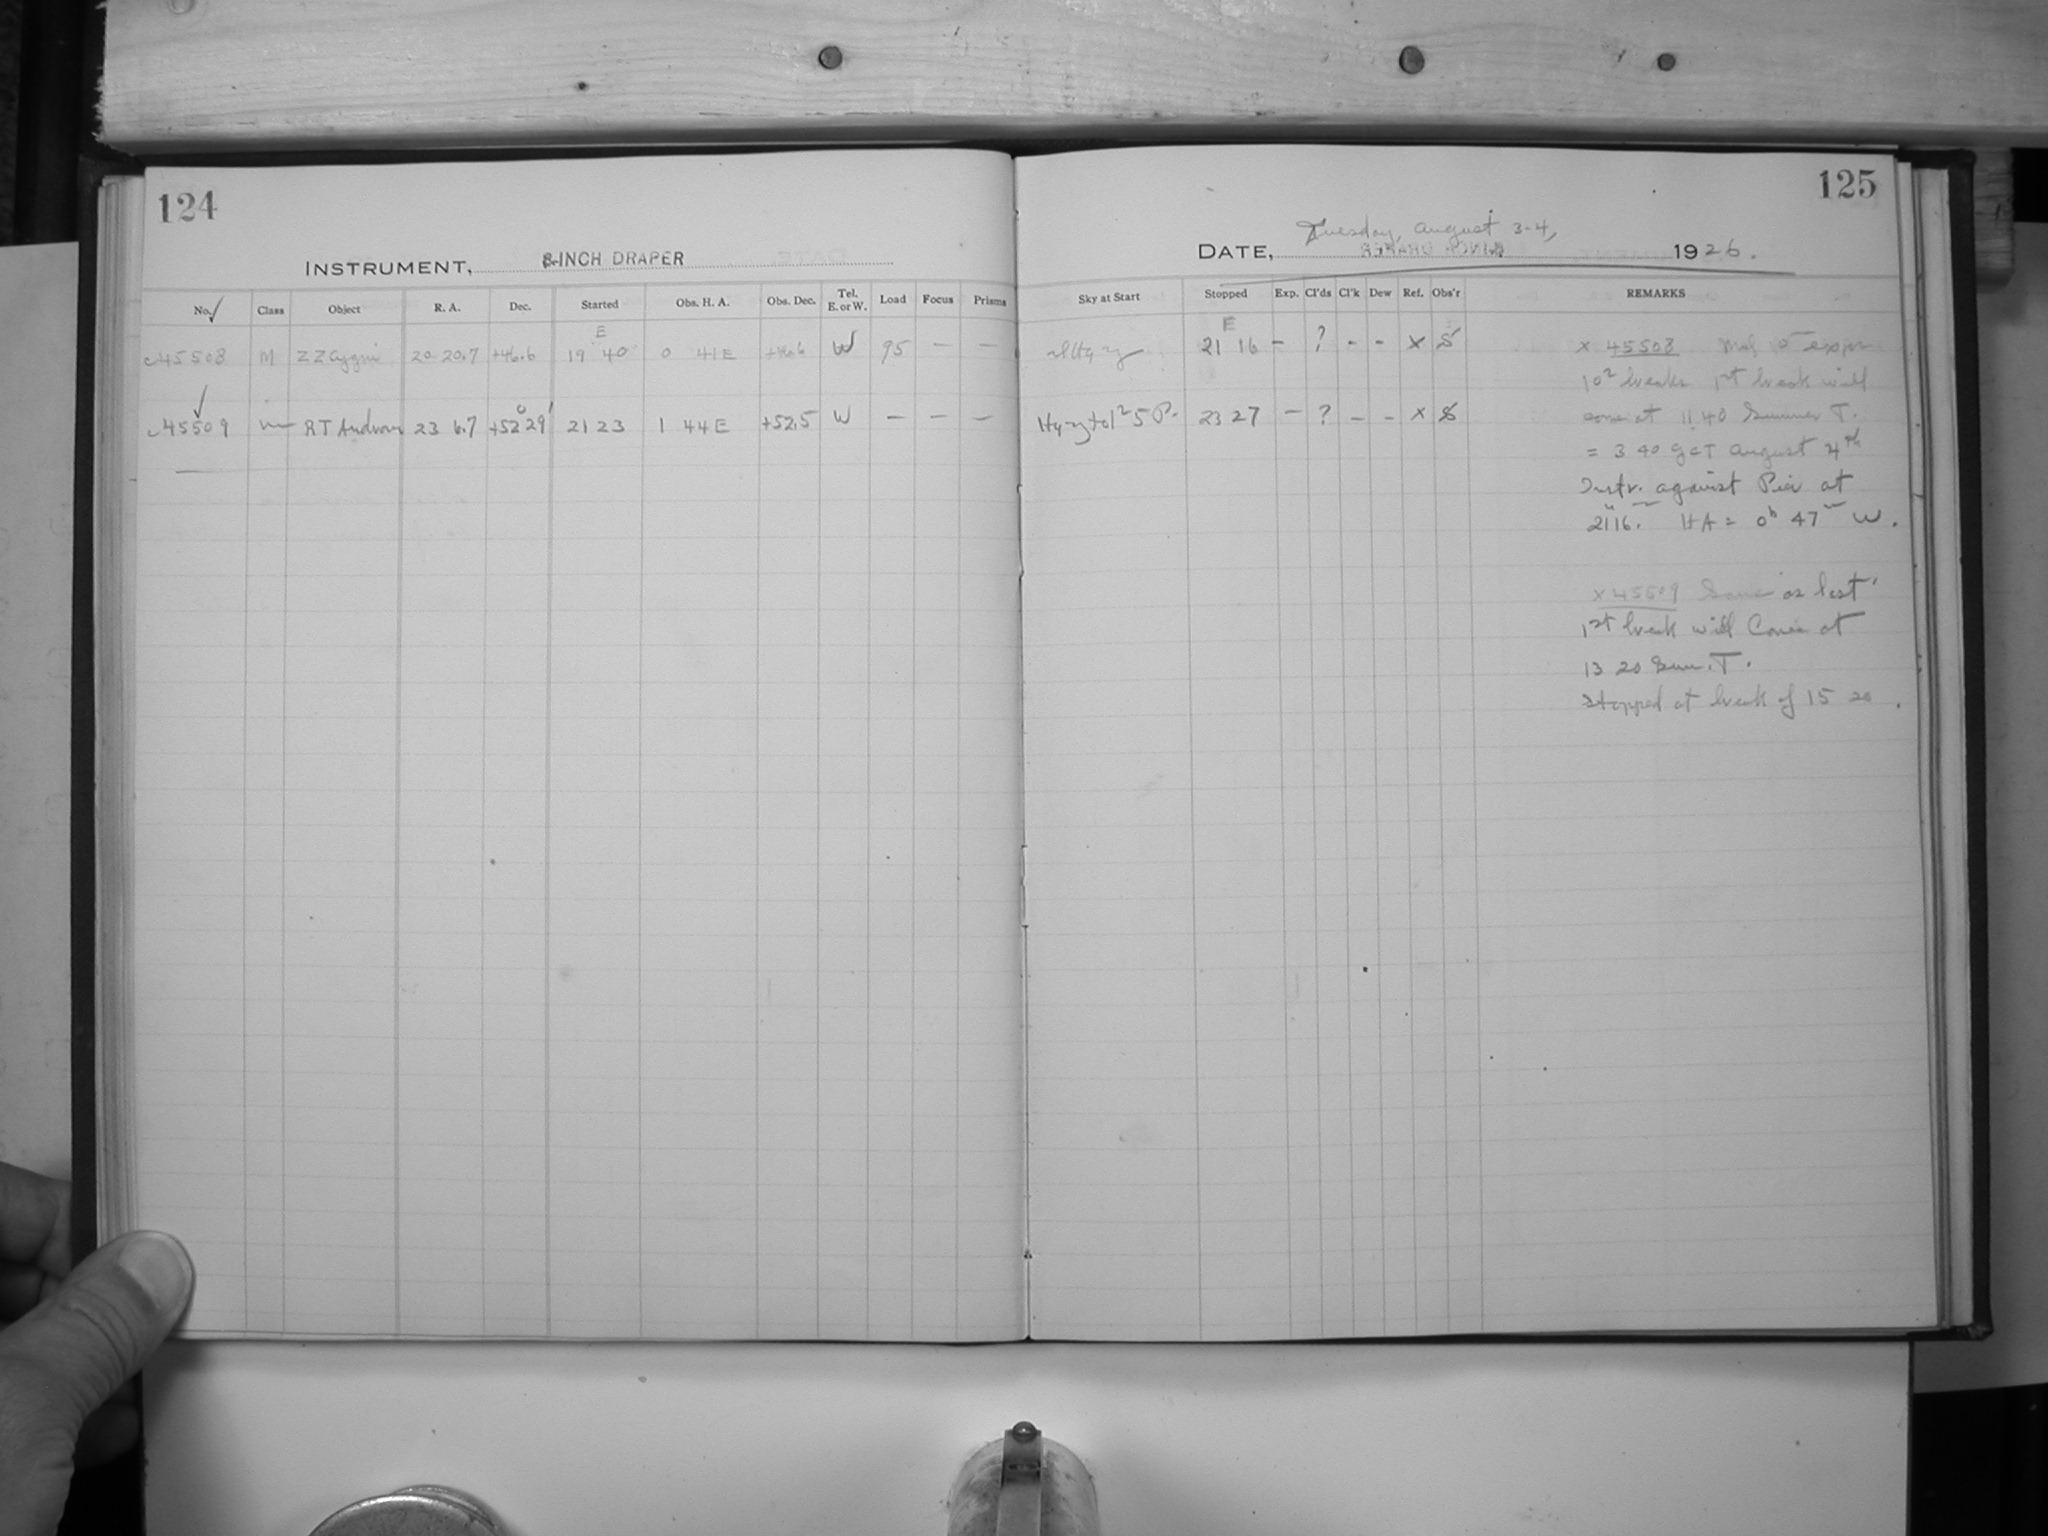 124
INSTRUMENT, 8-INCH DRAPER
No. Class Object R. A. Dec. Started Obs. H. A. Obs. Dec. Tel. E. or W. Load Focus Prisms
E
c45508 M ZZ Cygni 20 20.7 +46.6 19 40 0 41 E +46.6 W 95 — —
c45509 RT Androm 23 6.7 +52° 29' 21 23 1 44 E +52.5 W — — —
125
DATE, Tuesday, August 3-4, 1926.
Sky at Start Stopped Exp. Cl'ds Cl'k Dew Ref. Obs'r REMARKS
E
sl Hazy 21 16 — ? - - x S
Hazy to 1² 5 P. 23 27 — ? — - x S
x 45508
10² breaks 1st break will
come at 11 40 Summer T.
= 3 40 GCT August 4th
Instr. against Pier at
21 16. HA = 0h 47m W.
x 45509 Same as last
1st break will come at
13 20 Sum. T.
Stopped at break of 15 20.